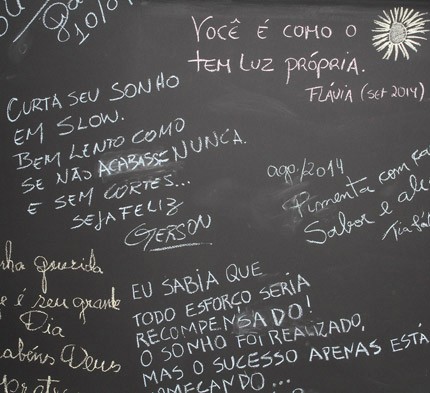 10/0
VOCÊ É COMO O
TEM LUZ PRÓPRIA.
FLÁVIA (set 2014)
CURTA SEU SONHO
EM SLOW.
BEM LENTO COMO
SE NÃO ACABASSE NUNCA.
E SEM CORTES...
SEJA FELIZ
GERSON
ago/2014
Pimenta com
Sabor e
Tia
nha querida
e é seu grande
Dia
abéns Deus
EU SABIA QUE
TODO ESFORÇO SERIA
RECOMPENSADO!
O SONHO FOI REALIZADO,
MAS O SUCESSO APENAS ESTÁ
OMEÇANDO...